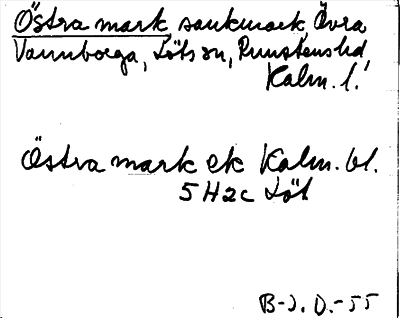 Östra mark, sankmark, Övra
Vannborga, Löts sn, Runstens hd,
Kalm. l.
Östra mark ek Kalm. bl.
5H2c Löt
B-J. D. -55